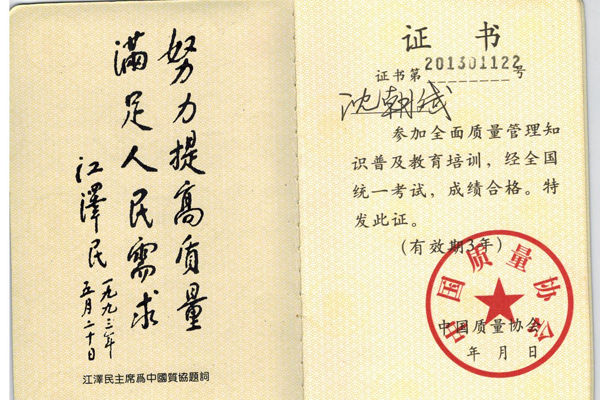 努力提高质量
滿足人民需求
江澤民
一九九三年
五月二十日
江澤民主席爲中國質協題詞
证书
证书第201301122号
沈朝斌
参加全面质量管理知
识普及教育培训，经全国
统一考试，成绩合格。特
发此证。
（有效期3年）
中国质量协会
中国质量协会
年 月 日